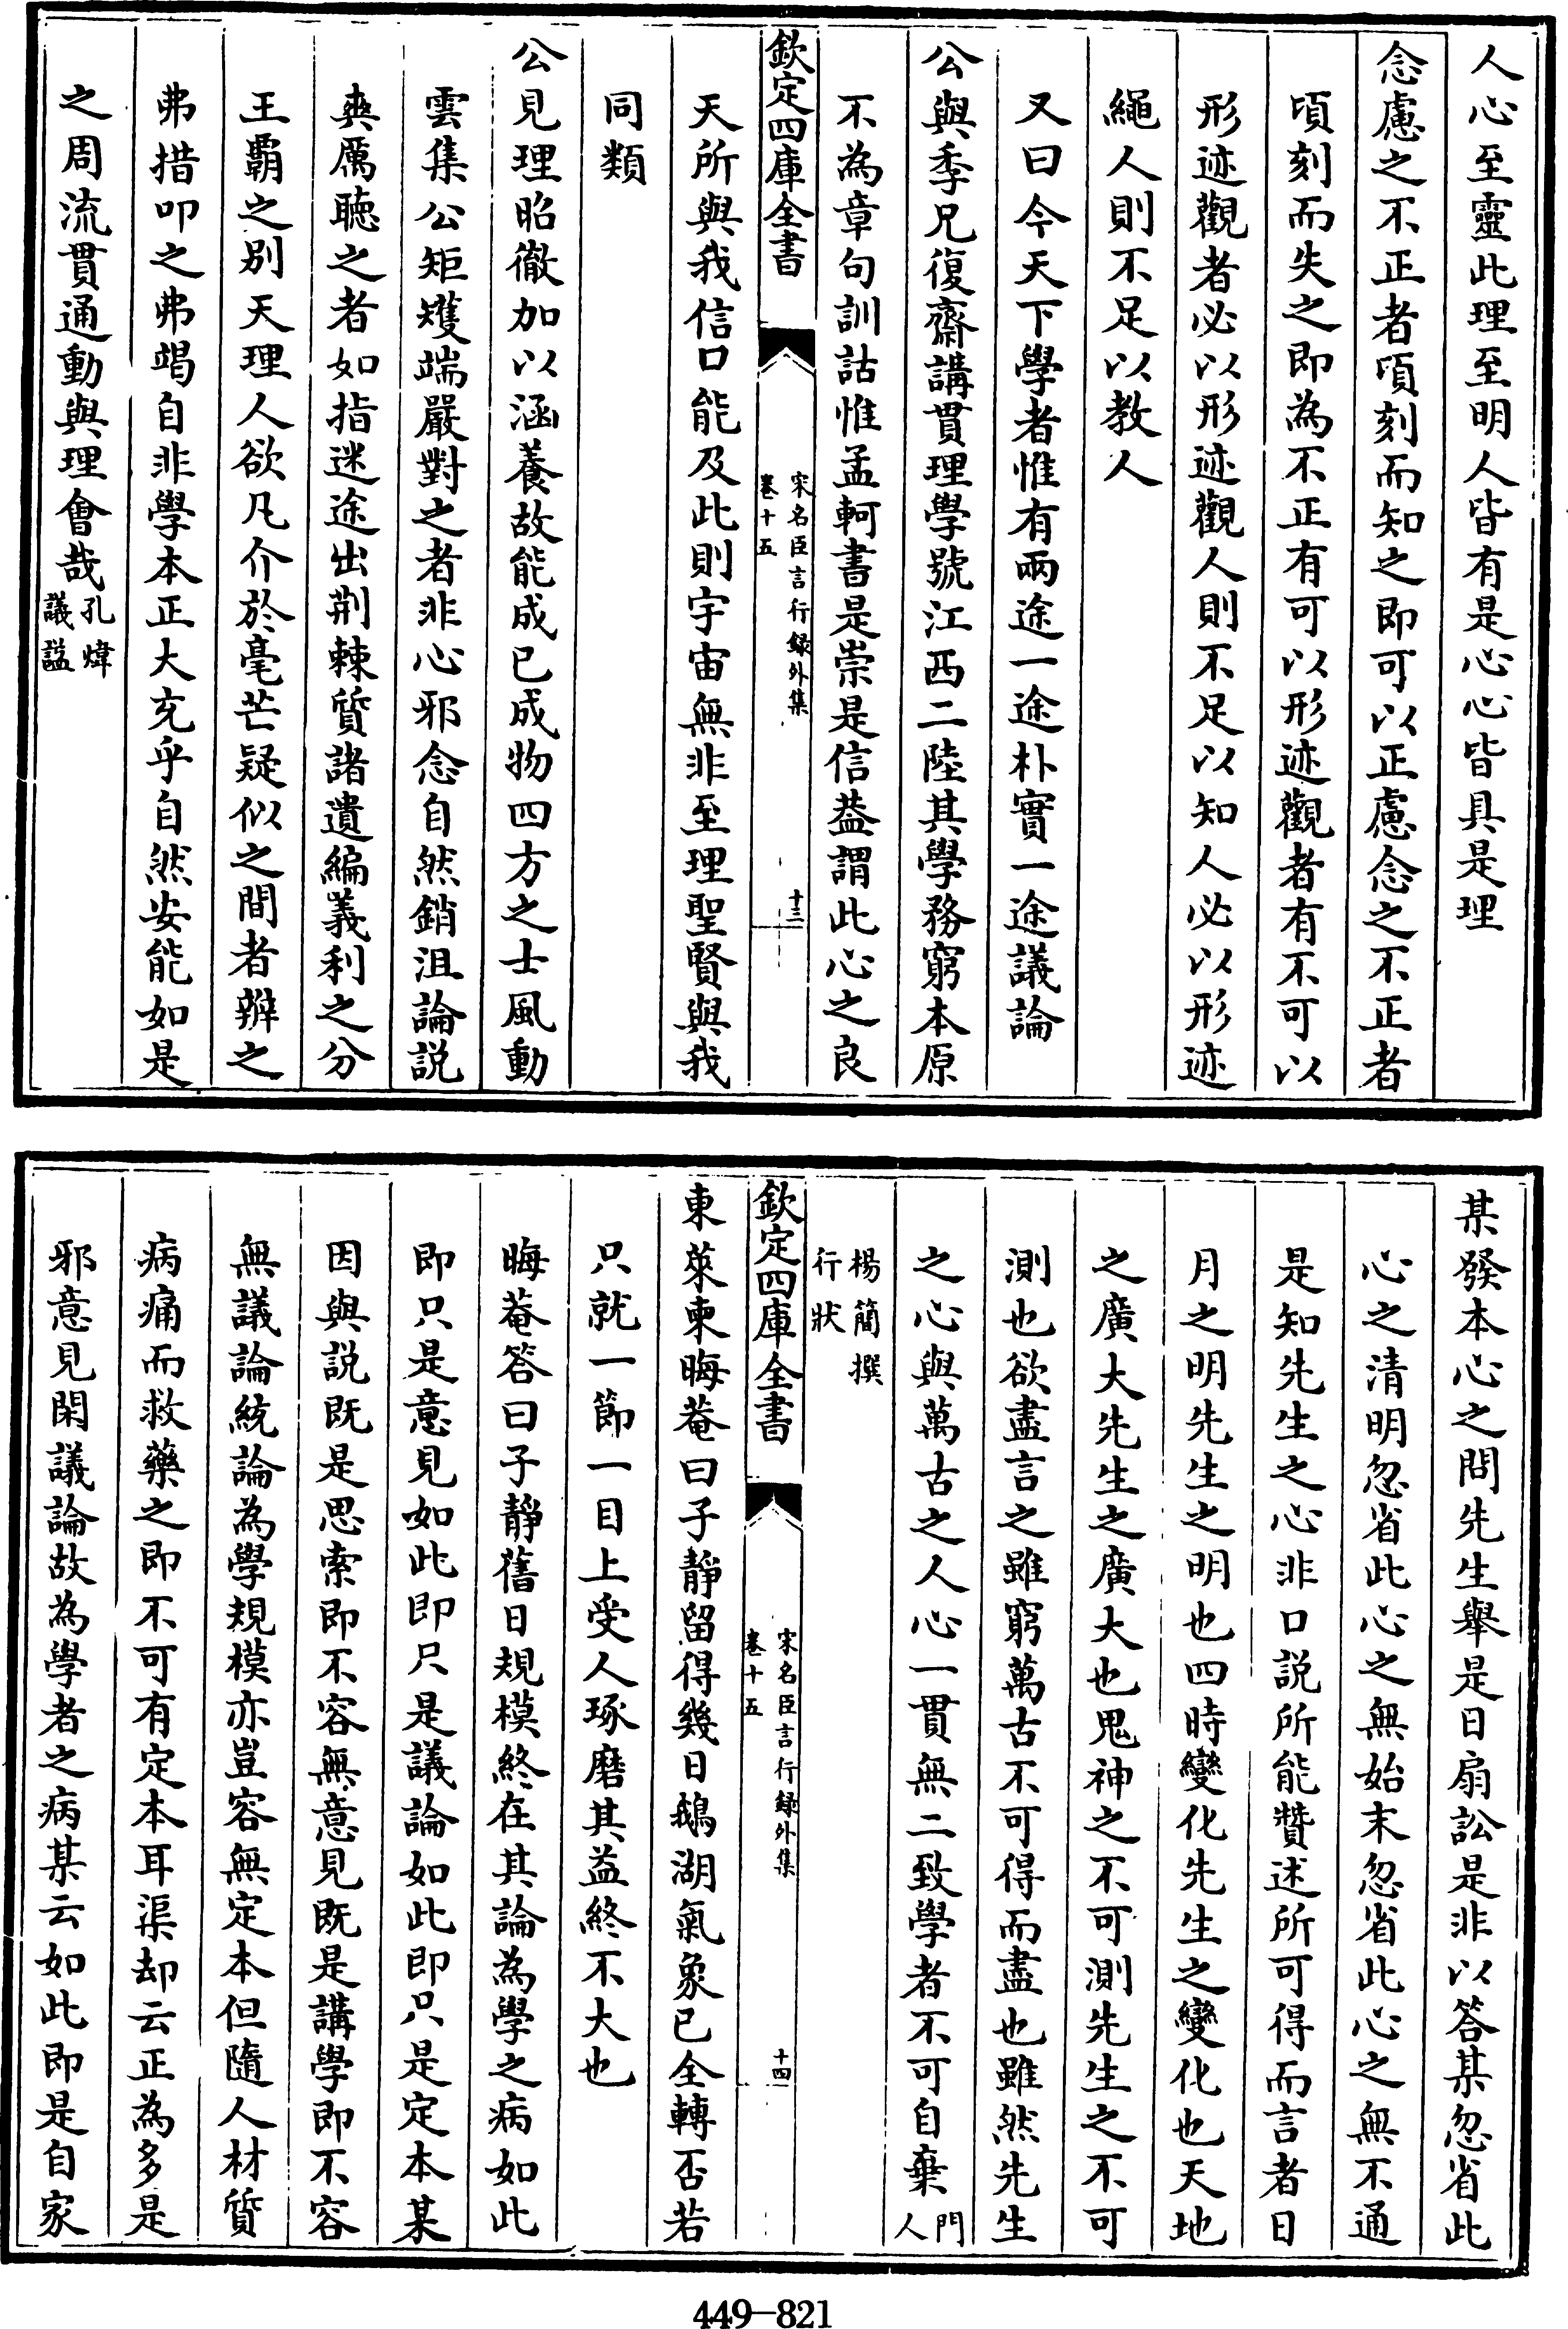 人心至靈此理至明人皆有是心心皆具是理
念慮之不正者頃刻而知之即可以正慮念之不正者
頃刻而失之即為不正有可以形迹觀者有不可以
形迹觀者必以形迹觀人則不足以知人必以形迹
繩人則不足以教人
又曰今天下學者惟有兩途一途朴實一途議論
公與季兄復齋講貫理學號江西二陸其學務窮本原
不為章句訓詁惟孟軻書是崇是信葢謂此心之良
欽定四庫全書
宋名臣言行録外集
卷十五
十三
天所與我信口能及此則宇宙無非至理聖賢與我
同類
公見理昭徹加以涵養故能成已成物四方之士風動
雲集公矩矱端嚴對之者非心邪念自然銷沮論説
爽厲聴之者如指迷途出荆棘質諸遺編義利之分
王霸之别天理人欲凡介於毫芒疑似之間者辨之
弗措叩之弗竭自非學本正大充乎自然安能如是
之周流貫通動與理會哉孔煒
議諡
某發本心之問先生舉是日扇訟是非以答某忽省此
心之清明忽省此心之無始末忽省此心之無不通
是知先生之心非口説所能贊述所可得而言者日
月之明先生之明也四時變化先生之變化也天地
之廣大先生之廣大也鬼神之不可測先生之不可
測也欲盡言之雖窮萬古不可得而盡也雖然先生
之心與萬古之人心一貫無二致學者不可自棄門
人
楊簡撰
行狀
欽定四庫全書
宋名臣言行録外集
卷十五
十四
東萊柬晦菴曰子靜留得幾日鵝湖氣象已全轉否若
只就一節一目上受人琢磨其益終不大也
晦菴答曰子靜舊日規模終在其論為學之病如此
即只是意見如此即只是議論如此即只是定本某
因與説既是思索即不容無意見既是講學即不容
無議論統論為學規模亦豈容無定本但隨人材質
病痛而救藥之即不可有定本耳渠却云正為多是
邪意見閑議論故為學者之病某云如此即是自家
449-821